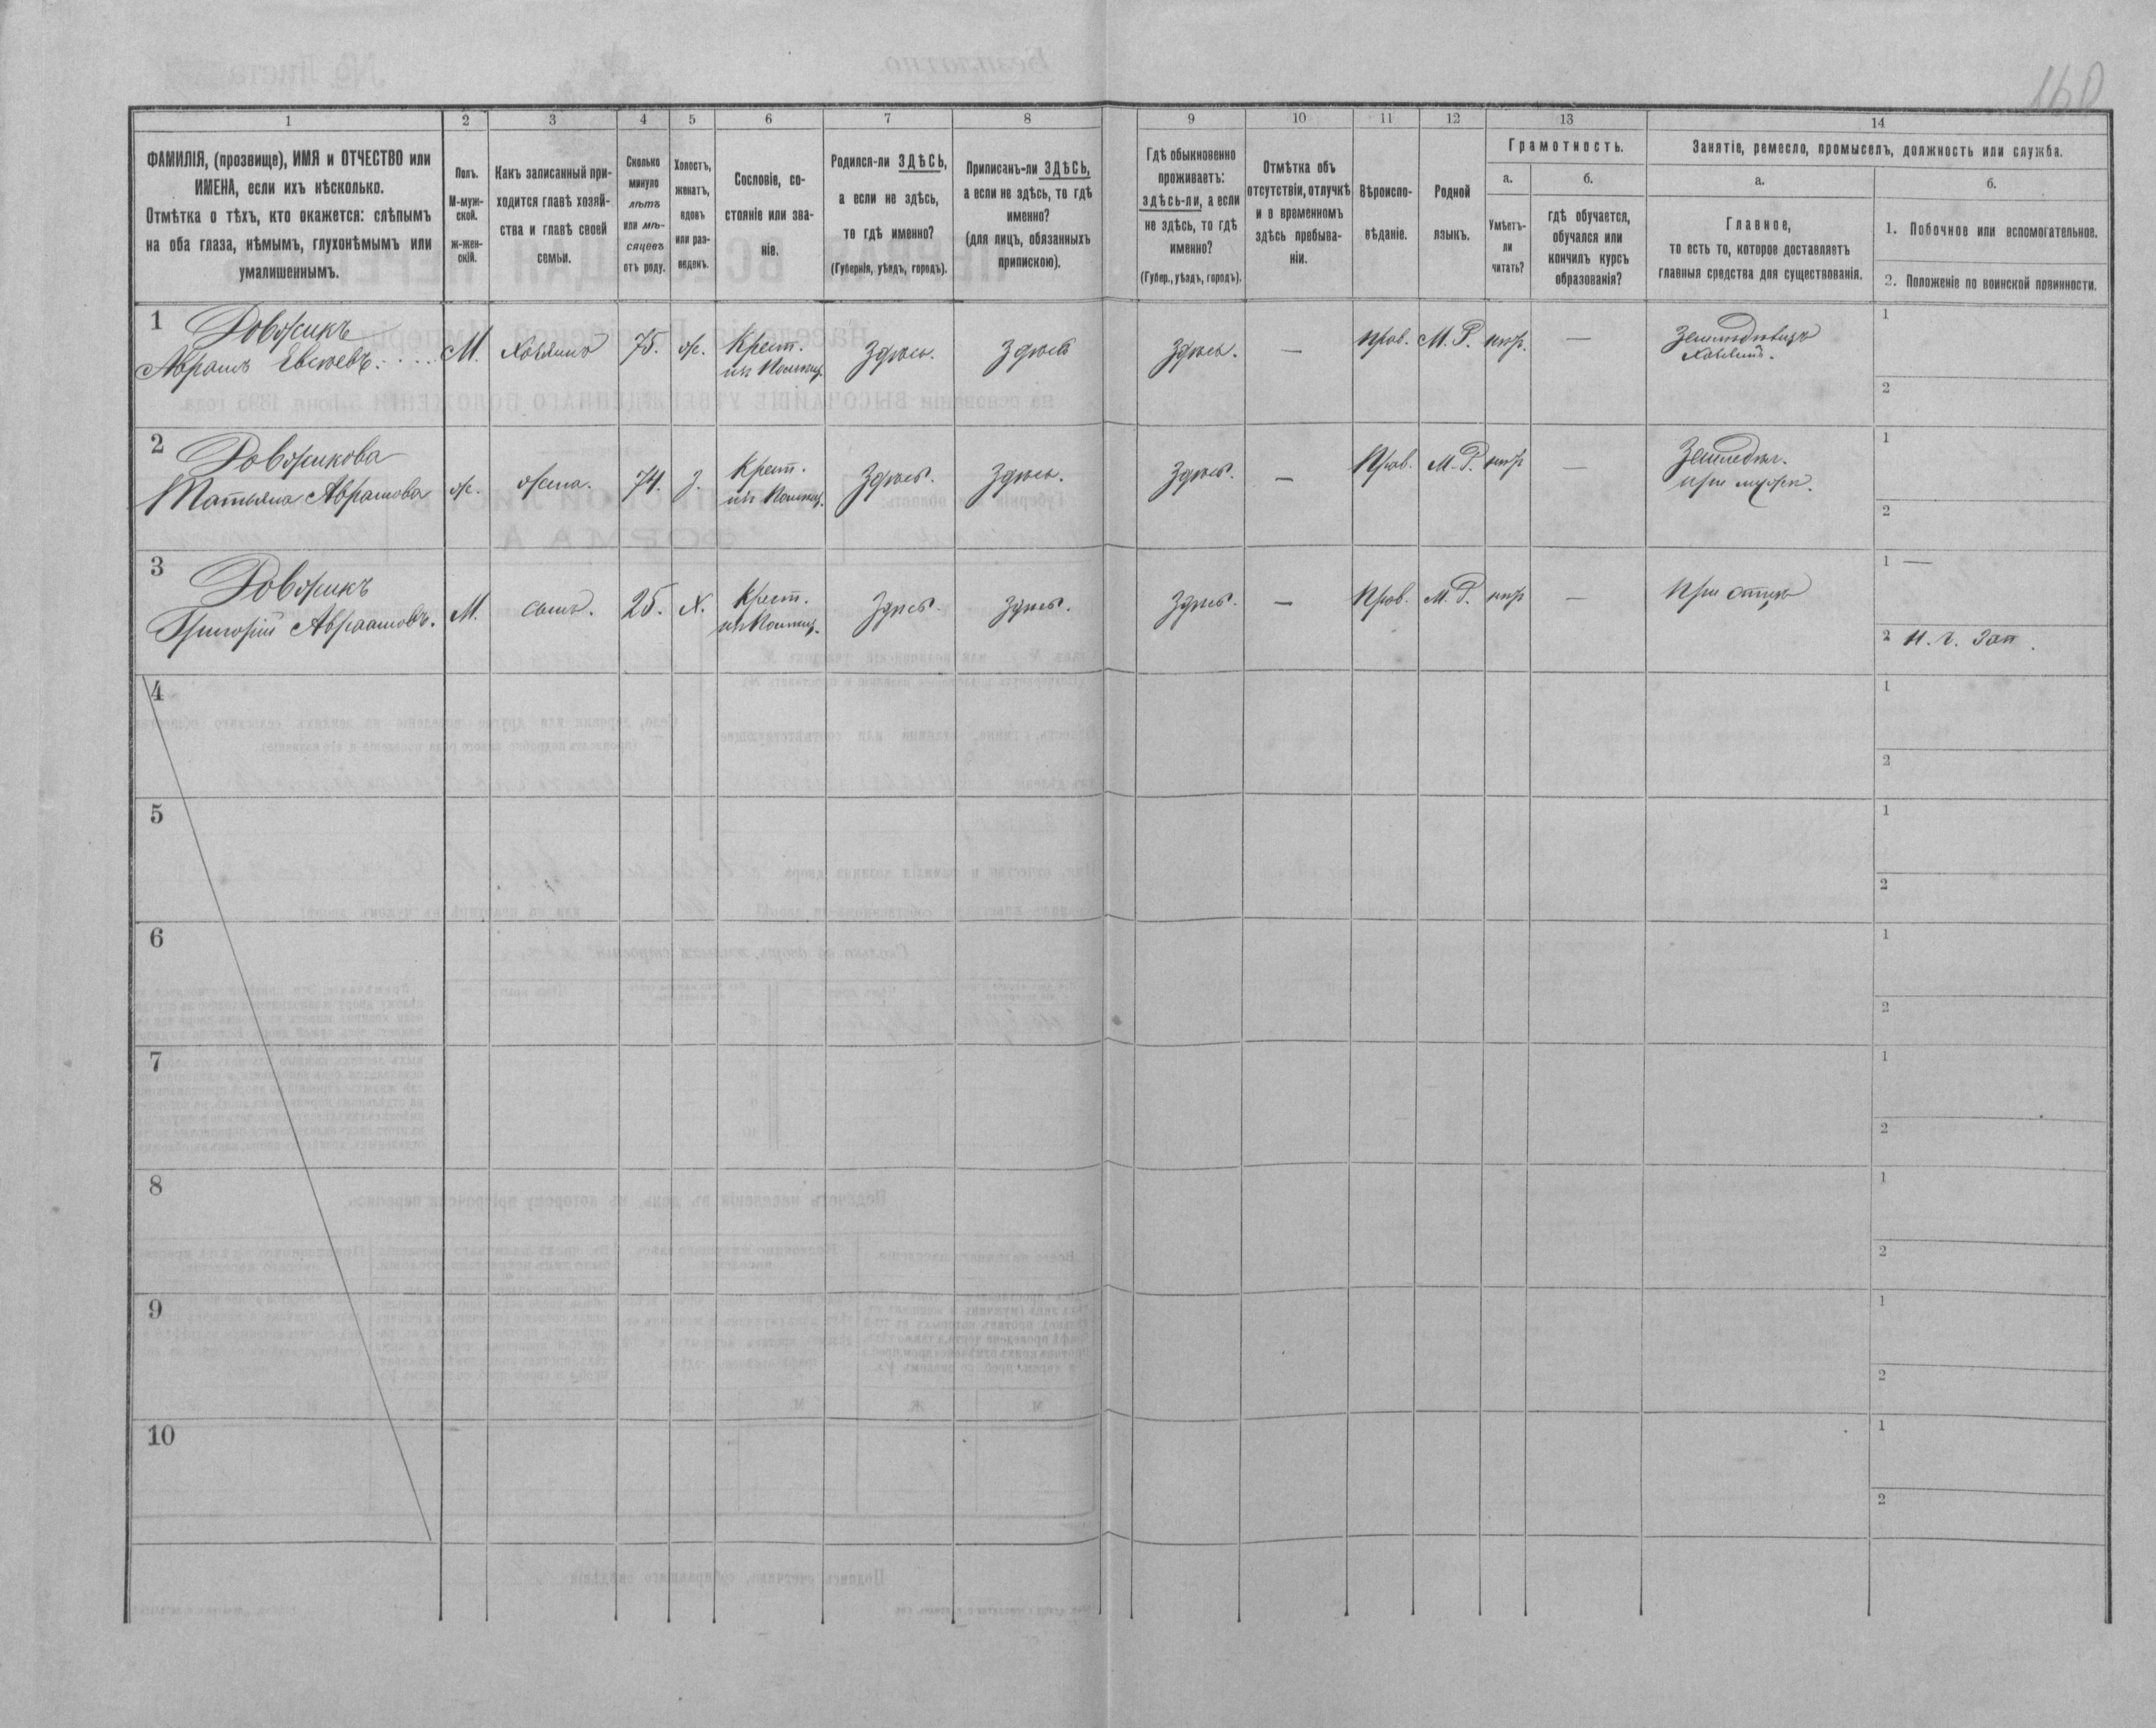 160
1
2
3
4
5
6
7
8
9
10
11
12
13
14
ФАМИЛІЯ, (прозвище), ИМЯ и ОТЧЕСТВО или
ИМЕНА, если ихъ нѣсколько.
Отмѣтка о тѣхъ, кто окажется: слѣпымъ
на оба глаза, нѣмымъ, глухонѣмымъ или
умалишеннымъ.
Полъ.
М-муж-
ской.
ж-жен-
скій.
Какъ записанный при-
ходится главѣ хозяй-
ства и главѣ своей
семьи.
Сколько
минуло
лѣтъ
или мѣ-
сяцевъ
отъ роду.
Холостъ,
женатъ,
вдовъ
или раз-
веденъ.
Сословіе, со-
стояніе или зва-
ніе.
Родился-ли ЗДѢСЬ,
а если не здѣсь,
то гдѣ именно?
(Губернія, уѣздъ, городъ).
Приписанъ-ли ЗДѢСЬ,
а если не здѣсь, то гдѣ
именно?
(для лицъ, обязанныхъ
припискою).
Гдѣ обыкновенно
проживаетъ:
здѣсь-ли, а если
не здѣсь, то гдѣ
именно?
(Губер., уѣздъ, городъ).
Отмѣтка объ
отсутствіи, отлучкѣ
и о временномъ
здѣсь пребыва-
ніи.
Вѣроиспо-
вѣданіе.
Родной
языкъ.
Грамотность.
а.
Умѣетъ-
ли
читать?
б.
гдѣ обучается,
обучался или
кончилъ курсъ
образованія?
Занятіе, ремесло, промыселъ, должность или служба.
а.
Главное,
то есть то, которое доставляетъ
главныя средства для существованія.
б.
1. Побочное или вспомогательное.
2. Положеніе по воинской повинности.
1
Довжикъ
Аврамъ Евсѣевъ.
М.
Хозяинъ
75.
ж.
Крест.
Здѣсь.
Здѣсь
Здѣсь.
—
прав.
М. Р.
—
Земледѣлецъ
Хозяинъ.
1
2
2
Довжикова
Татьяна Аврамова
ж.
жена.
74.
з.
Крест.
Здѣсь.
Здѣсь.
Здѣсь.
—
Прав.
М. Р.
—
Земледѣл.
при мужѣ.
1
2
3
Довжикъ
Григорій Авраамовъ.
М.
сынъ.
25.
Х.
Крест.
Здѣсь.
Здѣсь.
Здѣсь.
—
Прав.
М. Р.
—
при отцѣ
1 —
2 Н. ч. Зап.
4
1
2
5
1
2
6
1
2
7
1
2
8
1
2
9
1
2
10
1
2